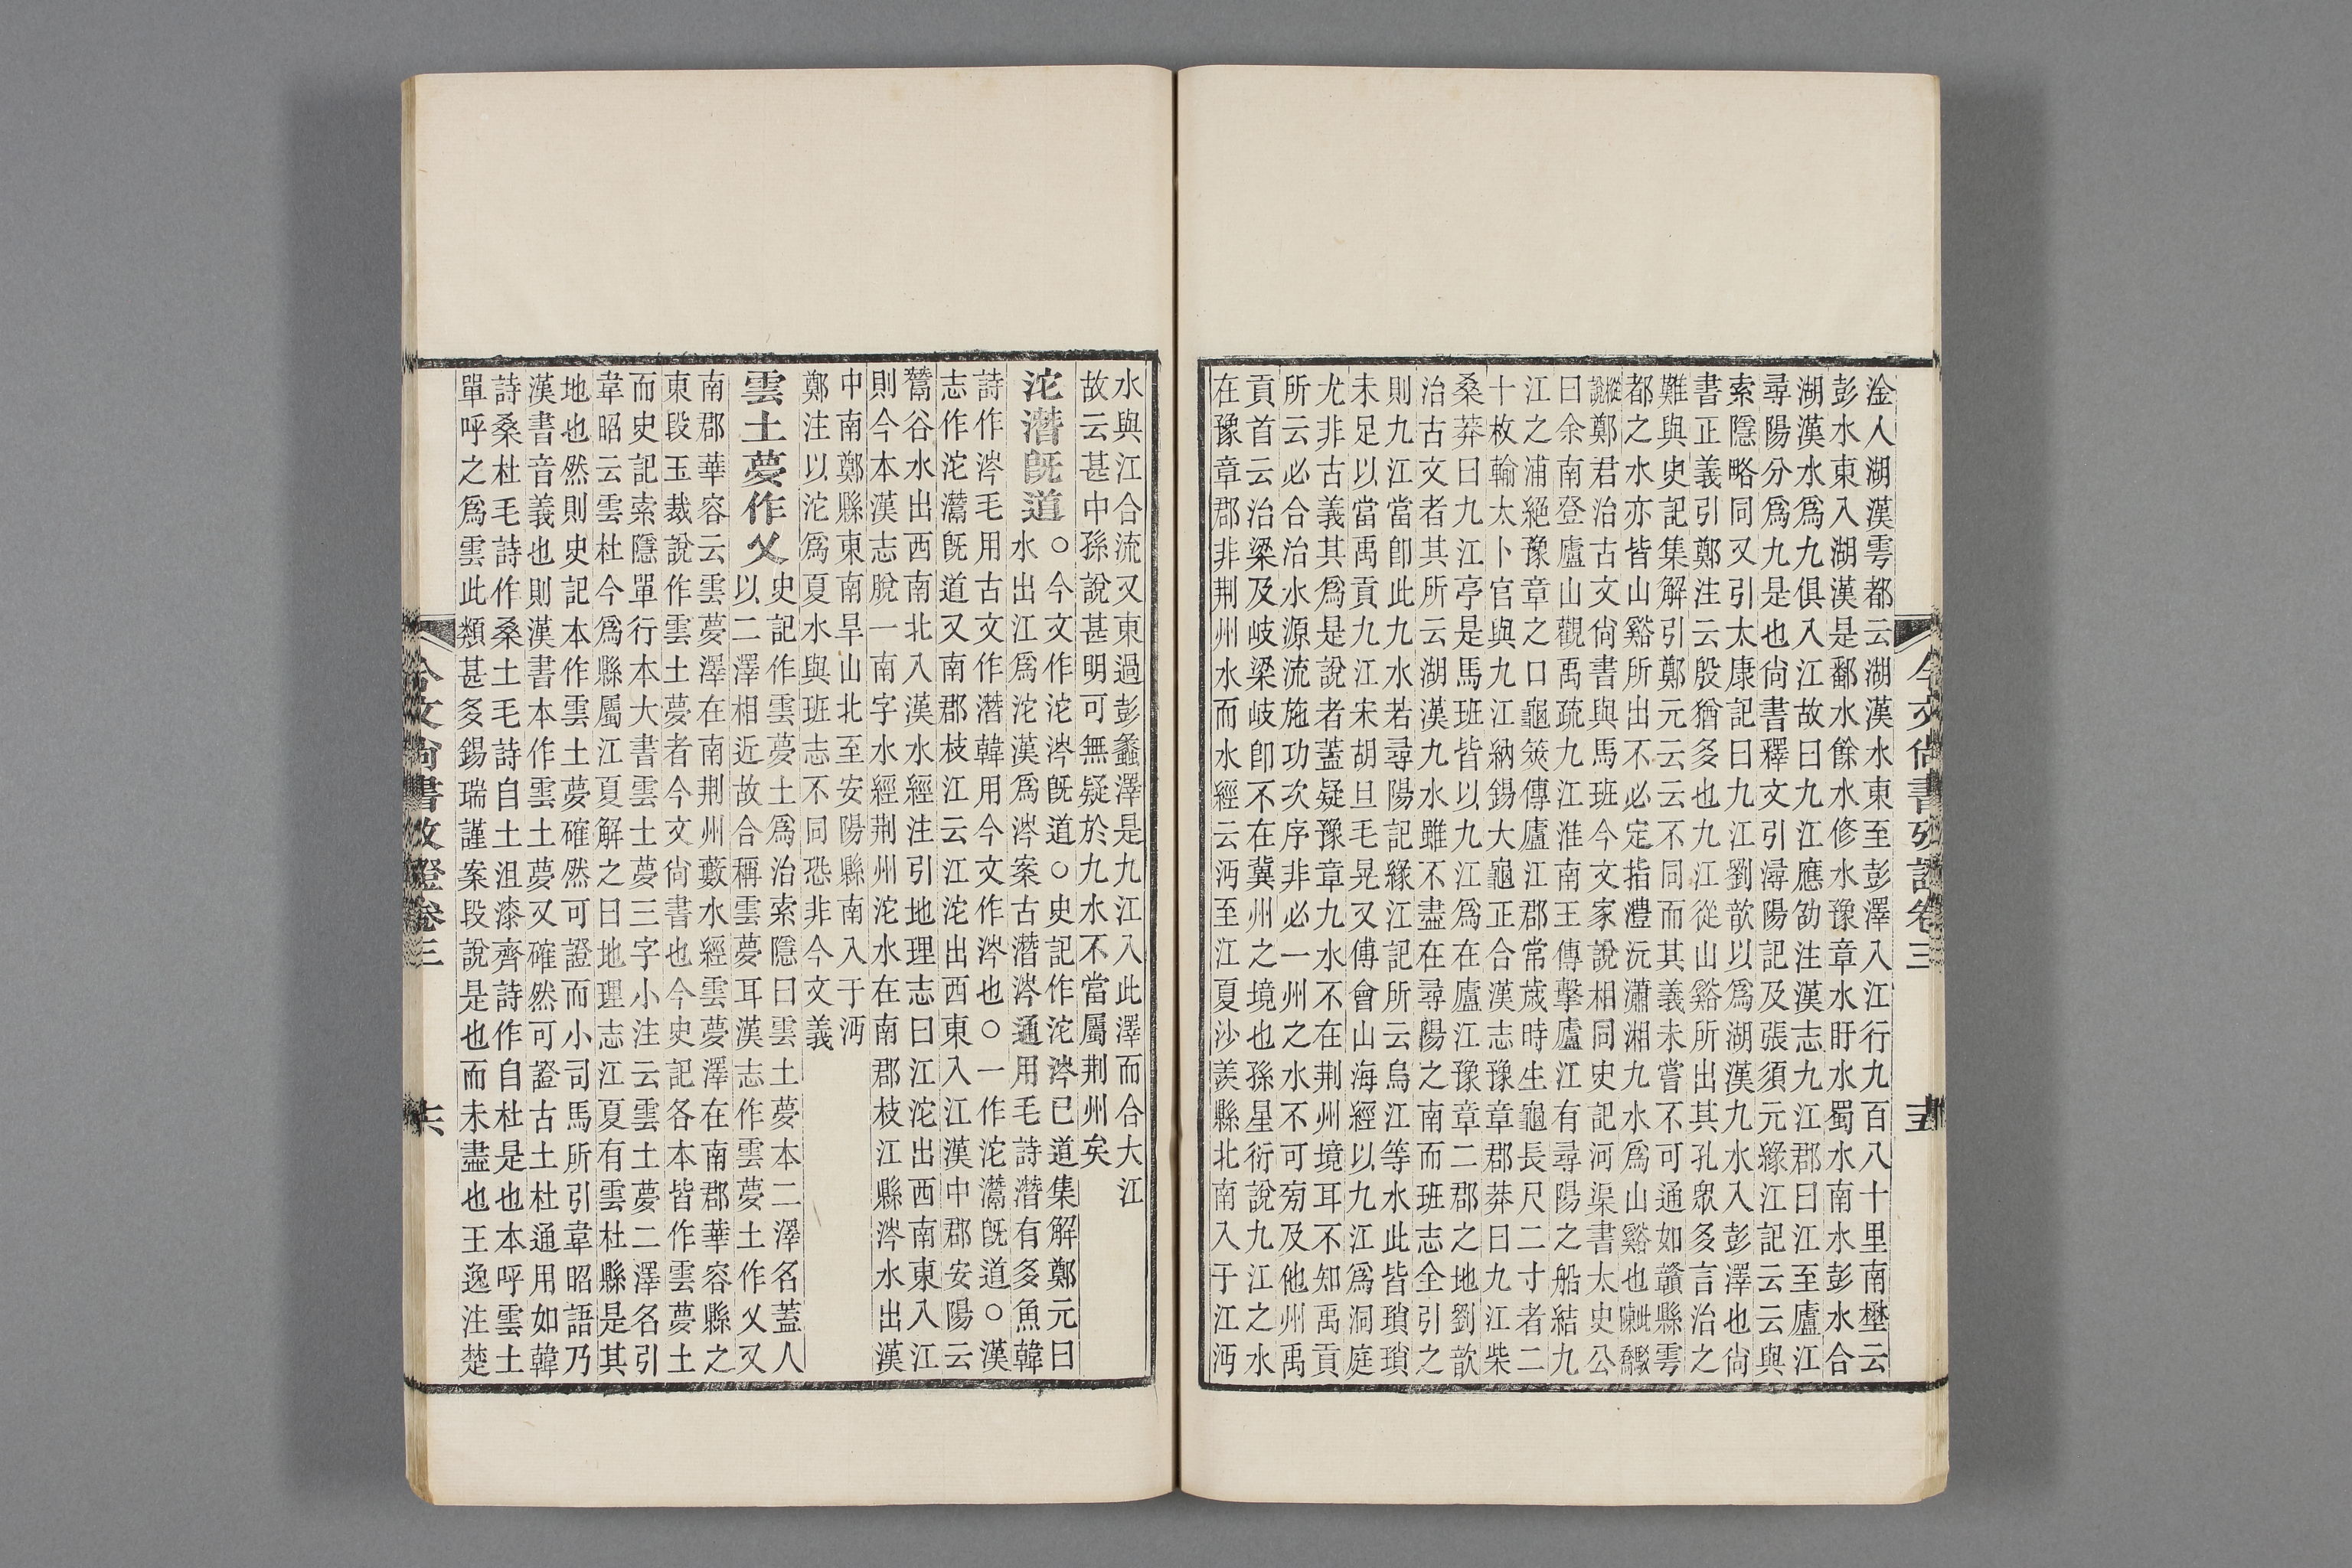 淦人湖漢雩都云湖漢水東至彭澤入江行九百八十里南壄云
彭水東入湖漢是鄱水餘水修水豫章水盱水蜀水南水彭水合
湖漢水爲九俱入江故曰九江應劭注漢志九江郡曰江至廬江
尋陽分爲九是也尙書釋文引潯陽記及張須元緣江記云云與
索隱略同又引太康記曰九江劉歆以爲湖漢九水入彭澤也尙
書正義引鄭注云殷猶多也九江從山谿所出其孔眾多言治之
難與史記集解引鄭元云云不同而其義未嘗不可通如贛縣雩
都之水亦皆山谿所出不必定指澧沅瀟湘九水爲山谿也此駁陳喬
樅說鄭君治古文尙書與馬班今文家說相同史記河渠書太史公
曰余南登廬山觀禹疏九江淮南王傳擊廬江有尋陽之船結九
江之浦絕豫章之口龜筴傳廬江郡常歲時生龜長尺二寸者二
十枚輸太卜官與九江納錫大龜正合漢志豫章郡莽曰九江柴
桑莽曰九江亭是馬班皆以九江爲在廬江豫章二郡之地劉歆
治古文者其所云湖漢九水雖不盡在尋陽之南而班志全引之
則九江當卽此九水若尋陽記緣江記所云烏江等水此皆瑣瑣
未足以當禹貢九江宋胡旦毛晃又傅會山海經以九江爲洞庭
尤非古義其爲是說者蓋疑豫章九水不在荆州境耳不知禹貢
所云必合治水源流施功次序非必一州之水不可㫄及他州禹
貢首云治梁及岐梁岐卽不在冀州之境也孫星衍說九江之水
在豫章郡非荆州水而水經云沔至江夏沙羨縣北南入于江沔
今文尙書攷證卷三 十五
水與江合流又東過彭蠡澤是九江入此澤而合大江
故云甚中孫說甚明可無疑於九水不當屬荆州矣
沱潛旣道
○今文作沱涔旣道○史記作沱涔已道集解鄭元曰
水出江爲沱漢爲涔案古潛涔通用毛詩潛有多魚韓
詩作涔毛用古文作潛韓用今文作涔也○一作沱灊旣道○漢
志作沱灊旣道又南郡枝江云江沱出西東入江漢中郡安陽云
鬵谷水出西南北入漢水經注引地理志曰江沱出西南東入江
則今本漢志脫一南字水經荆州沱水在南郡枝江縣涔水出漢
中南鄭縣東南旱山北至安陽縣南入于沔
鄭注以沱爲夏水與班志不同恐非今文義
雲土夢作乂
史記作雲夢土爲治索隱曰雲土夢本二澤名蓋人
以二澤相近故合稱雲夢耳漢志作雲夢土作乂又
南郡華容云雲夢澤在南荆州藪水經雲夢澤在南郡華容縣之
東段玉裁說作雲土夢者今文尙書也今史記各本皆作雲夢土
而史記索隱單行本大書雲土夢三字小注云雲土夢二澤名引
韋昭云雲杜今爲縣屬江夏解之曰地理志江夏有雲杜縣是其
地也然則史記本作雲土夢確然可證而小司馬所引韋昭語乃
漢書音義也則漢書本作雲土夢又確然可證古土杜通用如韓
詩桑杜毛詩作桑土毛詩自土沮漆齊詩作自杜是也本呼雲土
單呼之爲雲此類甚多錫瑞謹案段說是也而未盡也王逸注楚
今文尙書攷證卷三 十六